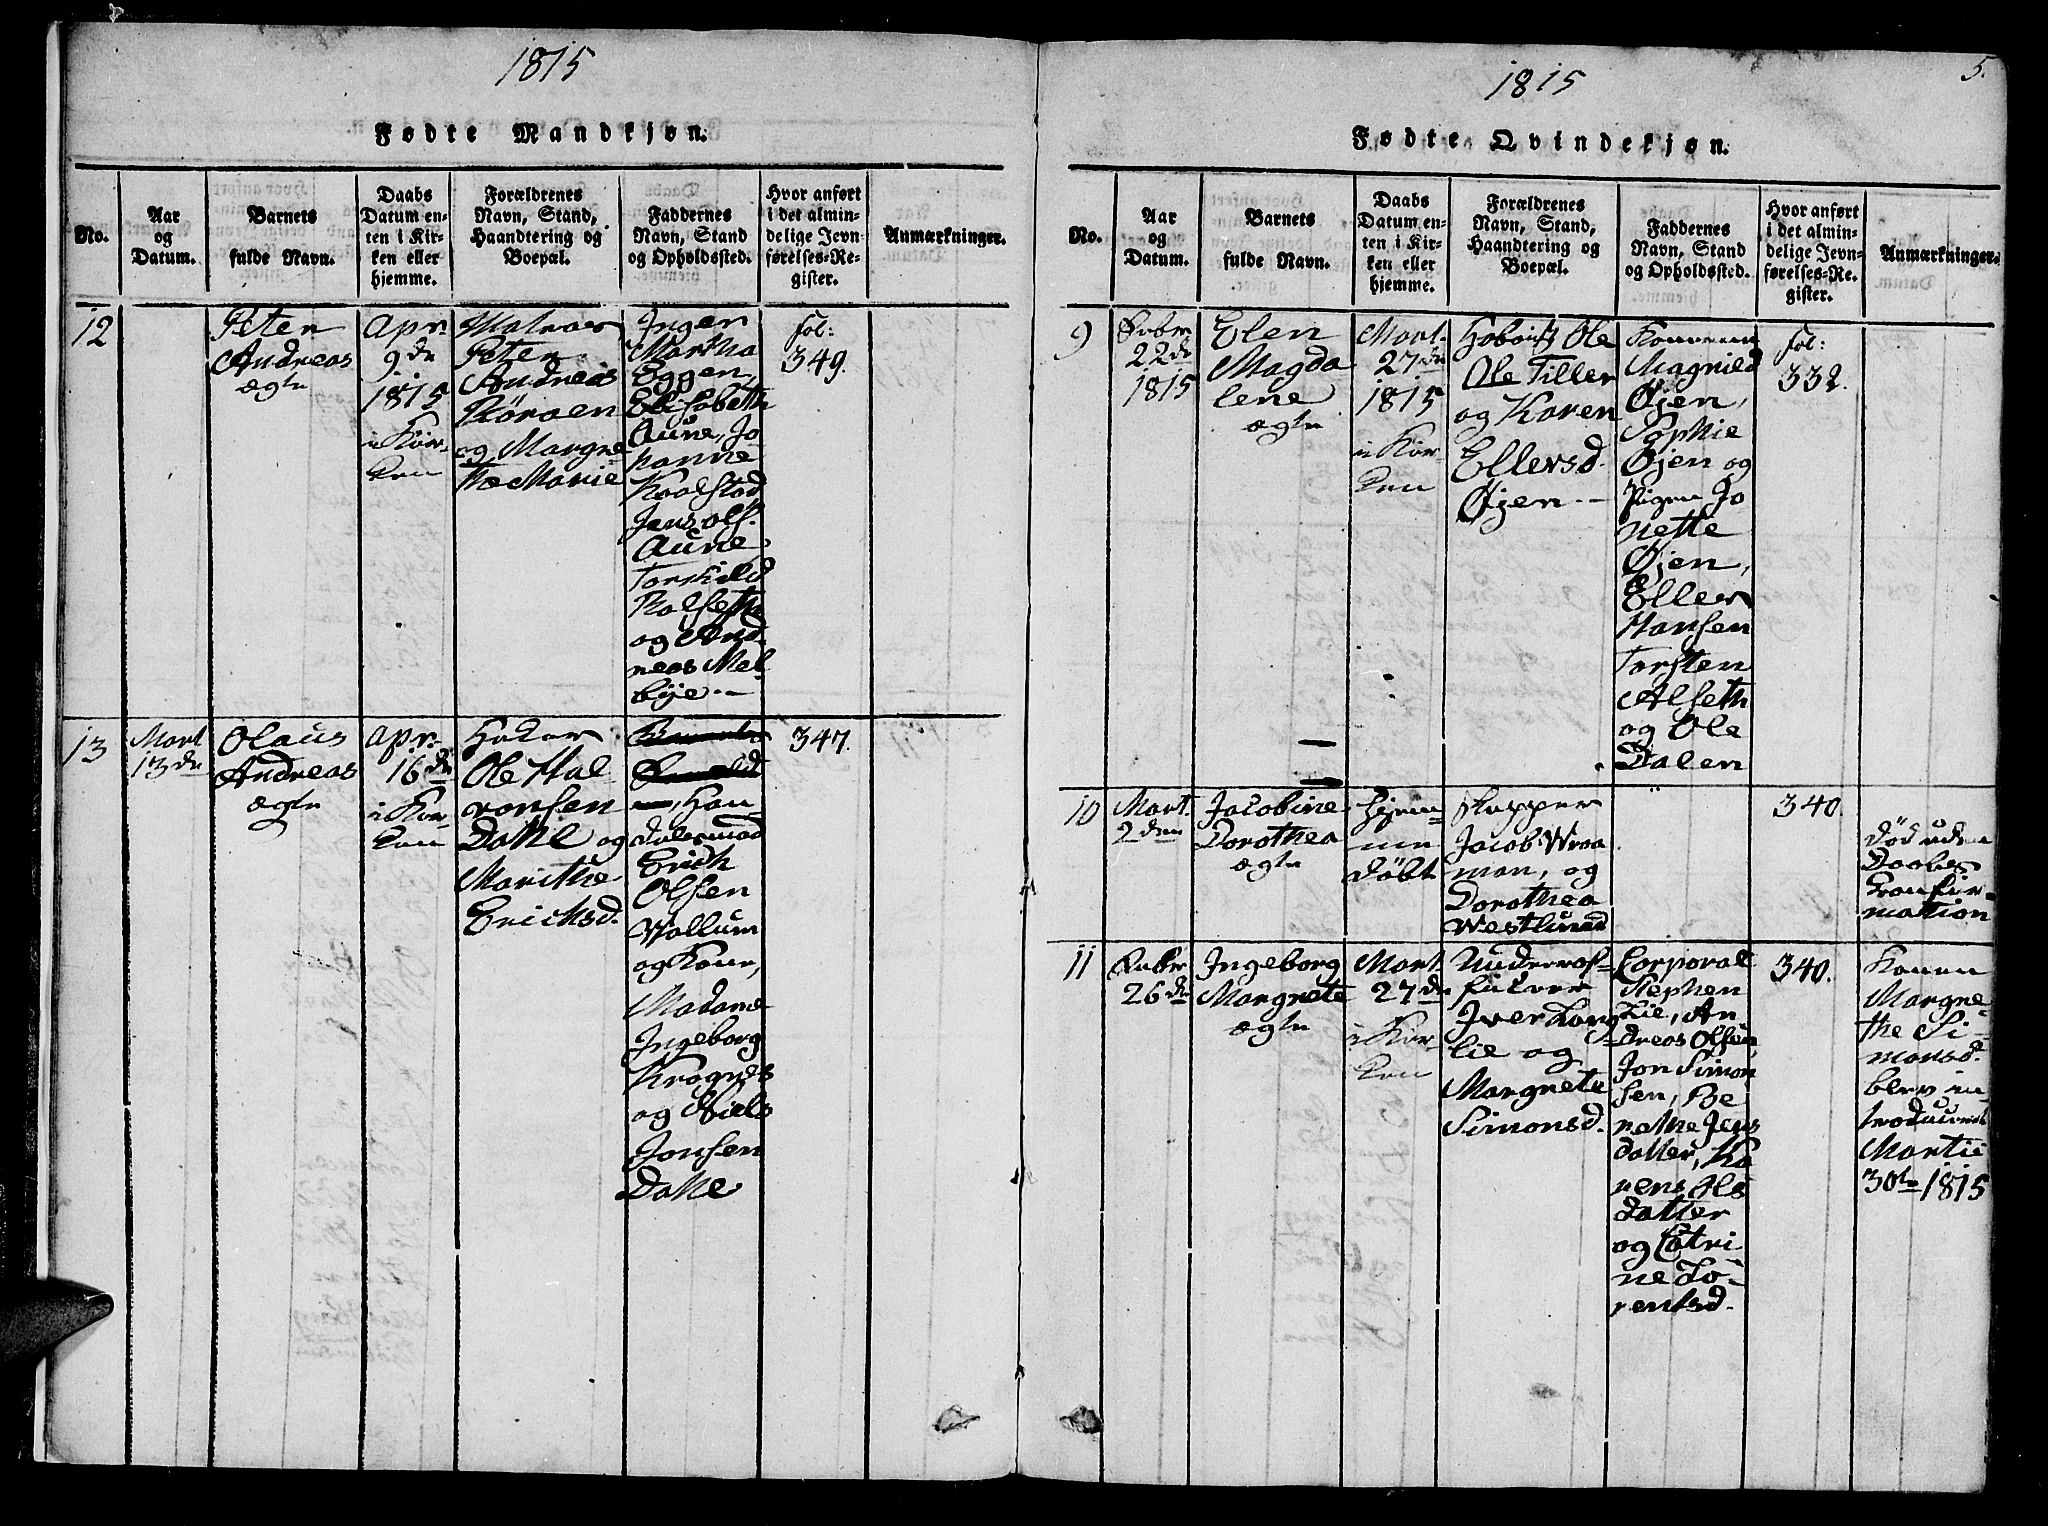 1815
Fødte Mandkjøn.
No.
Aar
og
Datum.
Barnets
fulde Navn.
Daabs
Datum en-
ten i Kir-
ken eller
hjemme.
Forældrenes
Navn, Stand,
Haandtering og
Boepæl.
Faddernes
Navn, Stand
og Opholdssted.
Hvor anført
i det almin-
delige Jevn-
førelses-Re-
gister.
Anmærkninger.
12
Peter
Andreas
ægte
Apr.
9de
1815
i Kir-
ken
Matros
Peter
Andreas
og Margre-
the Marie
Inger
Martha
Eggen,
Elisabeth
Aune, Jo
hanne
Kaalstad
Jens Ols.
Aune
Torkild
Rolseth
og And
reas Mel-
bye.—
Fol:
349.
13
Mart
13de
Olaus
Andreas
ægte
Apr.
16de
i Kir-
ken
Ole Hal
vorsen
Dahle og
Marithe
Ericksd.
Han
delsmad
Erich
Olsen
Vollum
og Kone,
Madame
Ingeborg
Kragnes
og Niels
Jonsen
Dahle
347.
1815
5.
Fødte Qvindekjøn.
No.
Aar
og
Datum.
Barnets
fulde Navn.
Daabs
Datum en-
ten i Kir-
ken eller
hjemme.
Forældrenes
Navn, Stand,
Haandtering og
Boepæl.
Faddernes
Navn, Stand
og Opholdssted.
Hvor anført
i det almin-
delige Jevn-
førelses-Re-
gister.
Anmærkninger.
9
22de
1815
Elen
Magda
lene
ægte
Mart.
27de
1815
i Kir-
ken
Ole
Ole Tiller
og Karen
Ellersd.
Øjen —
Magnild
Øjen,
Sophie
Øjen og
Pigen Jo
nette
Øjen,
Eller
Hansen
Torsten
Alseth
og Ole
Dalen
Fol:
332.
10
Mart.
2den
Jacobine
Dorothea
ægte
hjem-
me
døbt
Skipper
Jacob Wraa
man, og
Dorothea
Westlund
340.
død uden
Daabs
Confir-
mation
11
26de
Ingeborg
Margrete
ægte
Mart.
27de
i Kir-
ken
Iver Lang
lie og
Margrete
Simonsd.
Corporal
Stephen
Lie, An
dreas Olsen,
Jon Simon
sen, Be
rethe Jens
datter, Ka
rens Ols
datter
og Catri-
ne Lo-
rentsd.
340.
Konen
Margre-
the Si-
monsd.
blev in-
troduceret
Martii
30te 1815